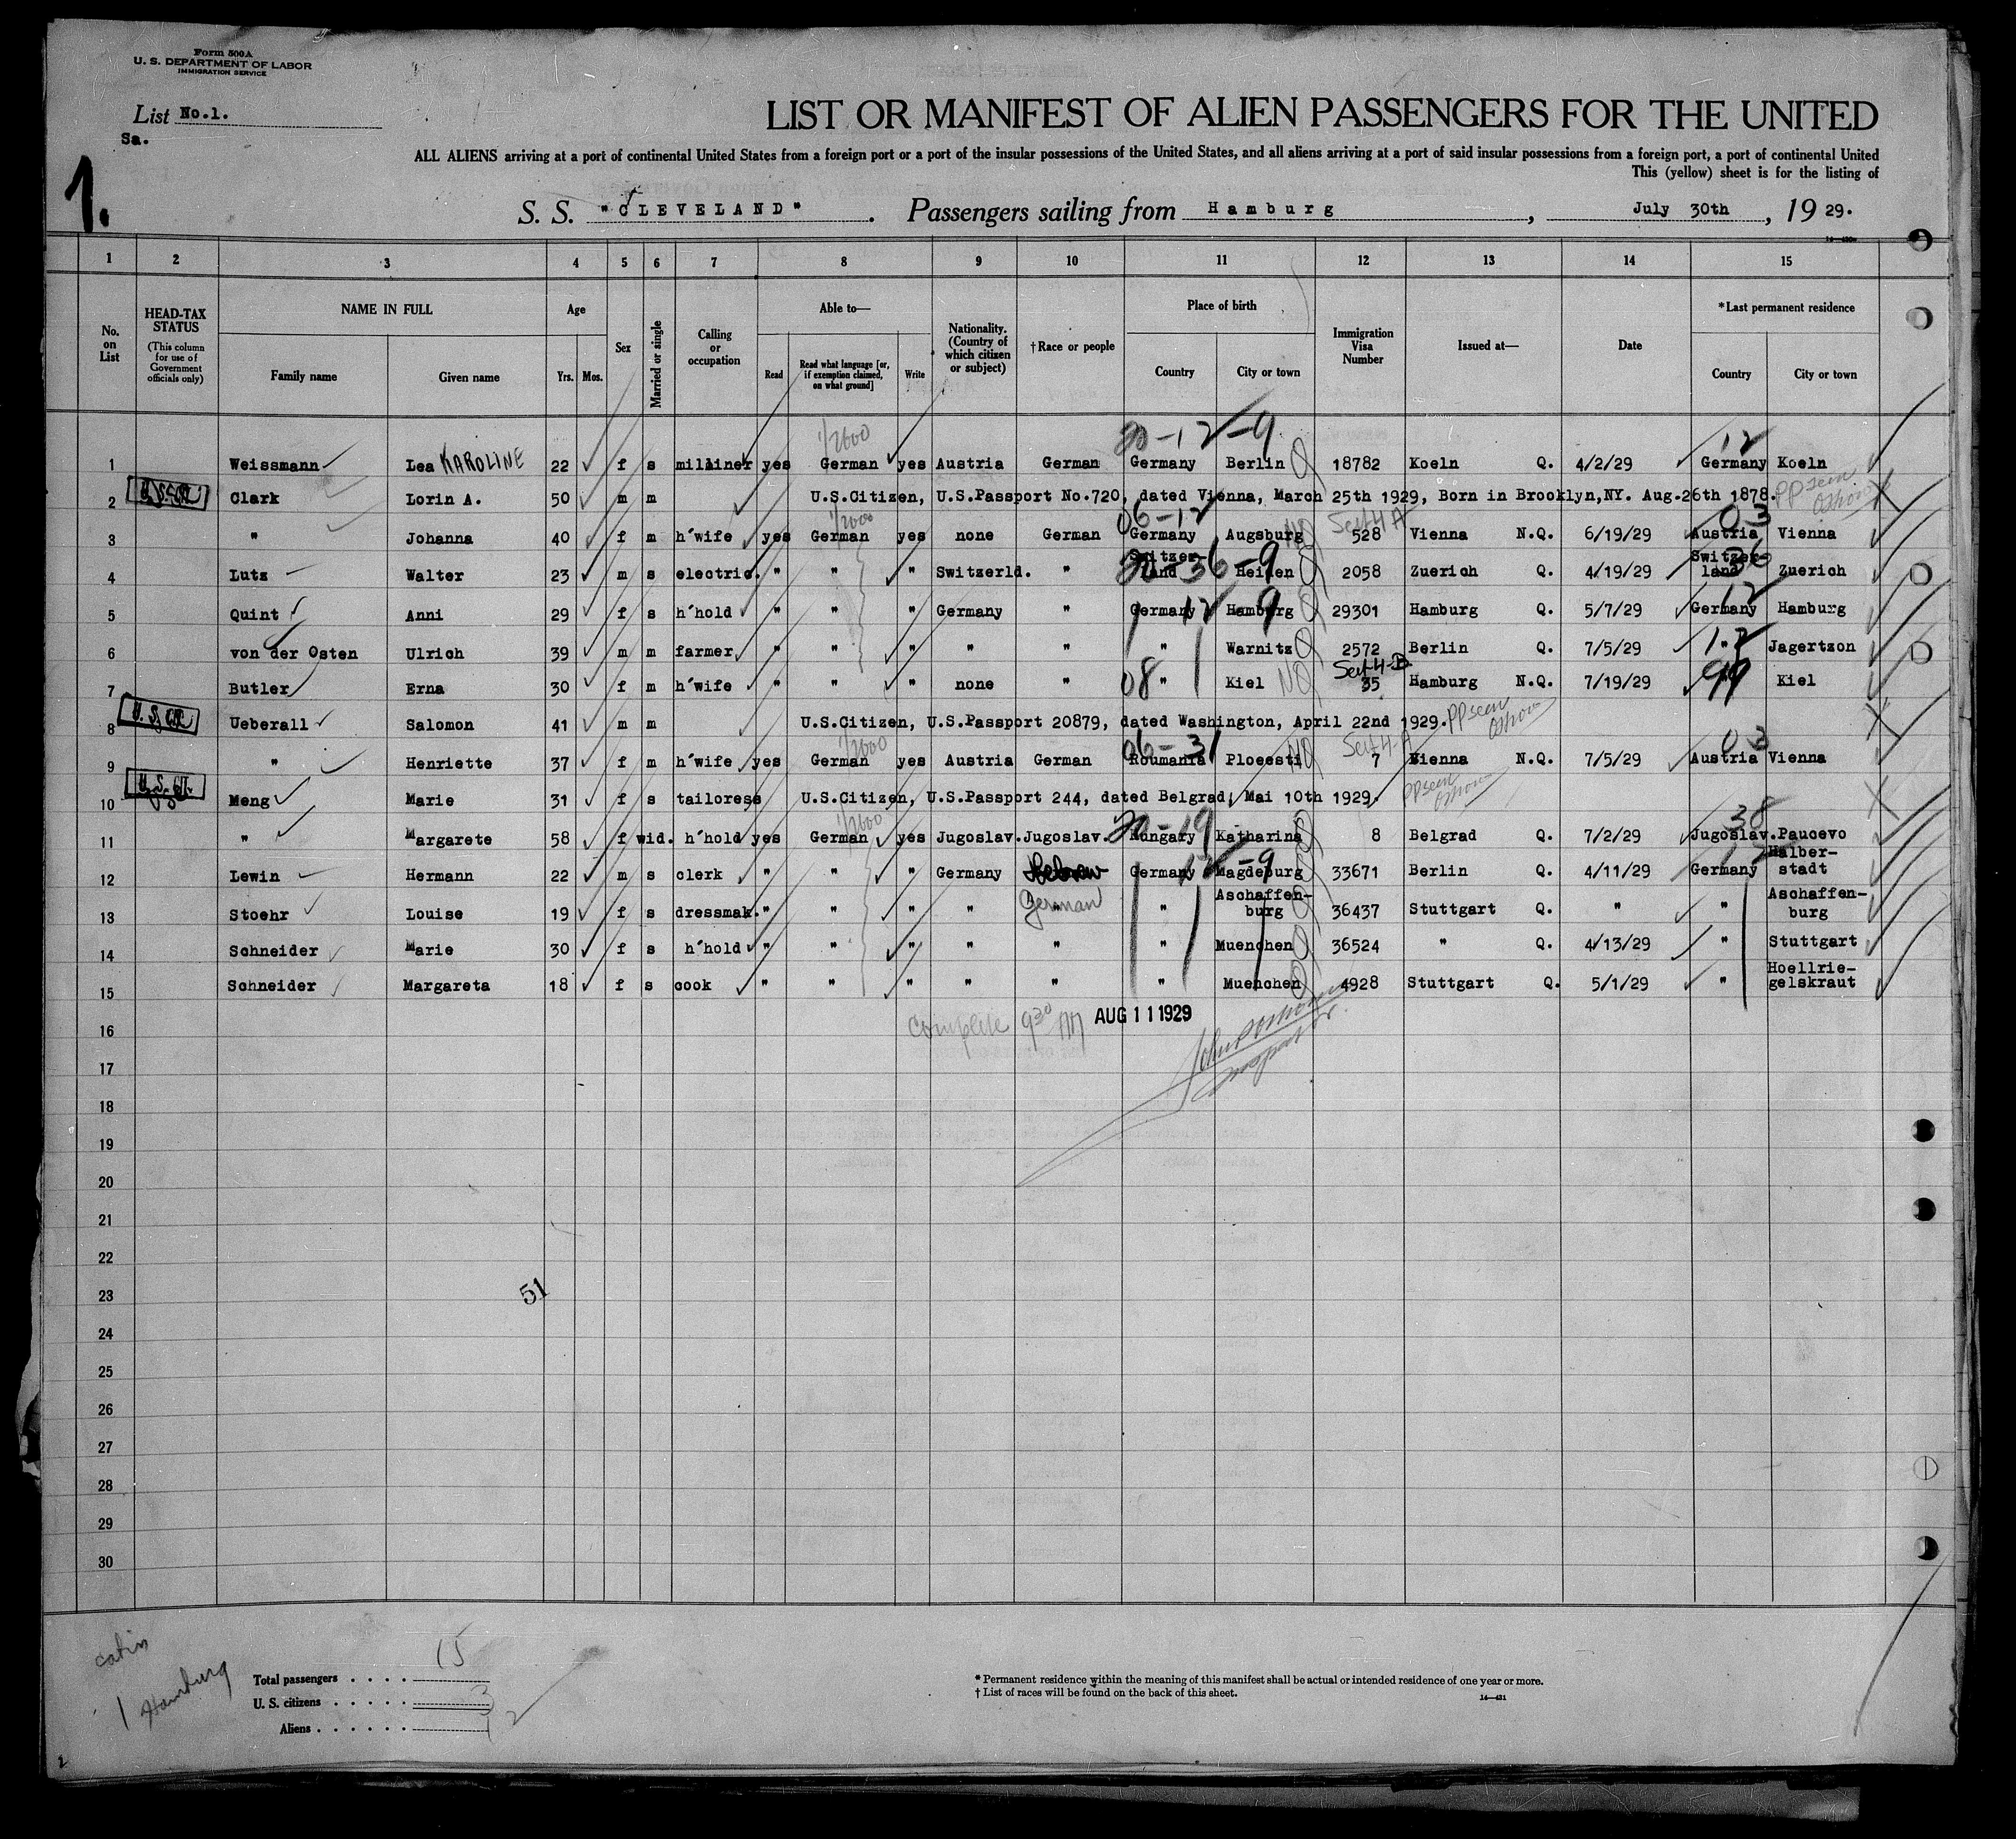 Form 500A
U. S. DEPARTMENT OF LABOR
IMMIGRATION SERVICE
List No.1.
Sa.
1.
LIST OR MANIFEST OF ALIEN PASSENGERS FOR THE UNITED
ALL ALIENS arriving at a port of continental United States from a foreign port or a port of the insular possessions of the United States, and all aliens arriving at a port of said insular possessions from a foreign port, a port of continental United
This (yellow) sheet is for the listing of
S. S. "CLEVELAND". Passengers sailing from Hamburg, July 30th, 1929.
1 2 3 4 5 6 7 8 9 10 11 12 13 14 15
No. on List
HEAD-TAX STATUS (This column for use of Government officials only)
NAME IN FULL
Family name Given name
Age
Yrs. Mos.
Sex
Married or single
Calling or occupation
Able to—
Read Read what language [or, if exemption claimed, on what ground] Write
Nationality. (Country of which citizen or subject)
†Race or people
Place of birth
Country City or town
Immigration Visa Number
Issued at—
Date
*Last permanent residence
Country City or town
20-12-9 12
1 Weissmann Lea KAROLINE 22 f s milliner yes German yes Austria German Germany Berlin 18782 Koeln Q. 4/2/29 Germany Koeln
2 Clark Lorin A. 50 m m U.S.Citizen, U.S.Passport No.720, dated Vienna, March 25th 1929, Born in Brooklyn,NY. Aug.26th 1878. PP seen
06-12 Sect 4 A 03
3 " Johanna 40 f m h'wife yes German yes none German Germany Augsburg NQ 528 Vienna N.Q. 6/19/29 Austria Vienna
20-36-9 36
4 Lutz Walter 23 m s electric. " " " Switzerld. " Switzerland Heiden 2058 Zuerich Q. 4/19/29 Switzerland Zuerich
12 9 12
5 Quint Anni 29 f s h'hold " " " Germany " Germany Hamburg 29301 Hamburg Q. 5/7/29 Germany Hamburg
6 von der Osten Ulrich 39 m m farmer " " " " " " Warnitz 2572 Berlin Q. 7/5/29 " Jagertzon
08 Sect 4-B 99
7 Butler Erna 30 f m h'wife " " " none " " Kiel NQ 35 Hamburg N.Q. 7/19/29 " Kiel
8 Ueberall Salomon 41 m m U.S.Citizen, U.S.Passport 20879, dated Washington, April 22nd 1929. PP seen
06-31 Sect 4-A 03
9 " Henriette 37 f m h'wife yes German yes Austria German Roumania Ploeesti NQ 7 Vienna N.Q. 7/5/29 Austria Vienna
U.S. CIT.
10 Meng Marie 31 f s tailoress U.S.Citizen, U.S.Passport 244, dated Belgrad, Mai 10th 1929. PP seen
20-19 38
11 " Margarete 58 f wid. h'hold yes German yes Jugoslav. Jugoslav. Hungary Katharina 8 Belgrad Q. 7/2/29 Jugoslav. Paucevo
12-9
12 Lewin Hermann 22 m s clerk " " " Germany Hebrew Germany Magdeburg 33671 Berlin Q. 4/11/29 Germany Halberstadt
13 Stoehr Louise 19 f s dressmak. " " " " German " Aschaffenburg 36437 Stuttgart Q. " " Aschaffenburg
14 Schneider Marie 30 f s h'hold " " " " " " Muenchen 36524 " Q. 4/13/29 " Stuttgart
15 Schneider Margareta 18 f s cook " " " " " " Muenchen 4928 Stuttgart Q. 5/1/29 " Hoellriegelskraut
Complete 9 30 AM AUG 11 1929
16
17
18
19
20
21
22
23
51
24
25
26
27
28
29
30
Hamburg
Total passengers . . . . 15
U. S. citizens . . . . . 3
Aliens . . . . . . 12
* Permanent residence within the meaning of this manifest shall be actual or intended residence of one year or more.
† List of races will be found on the back of this sheet.
14—431